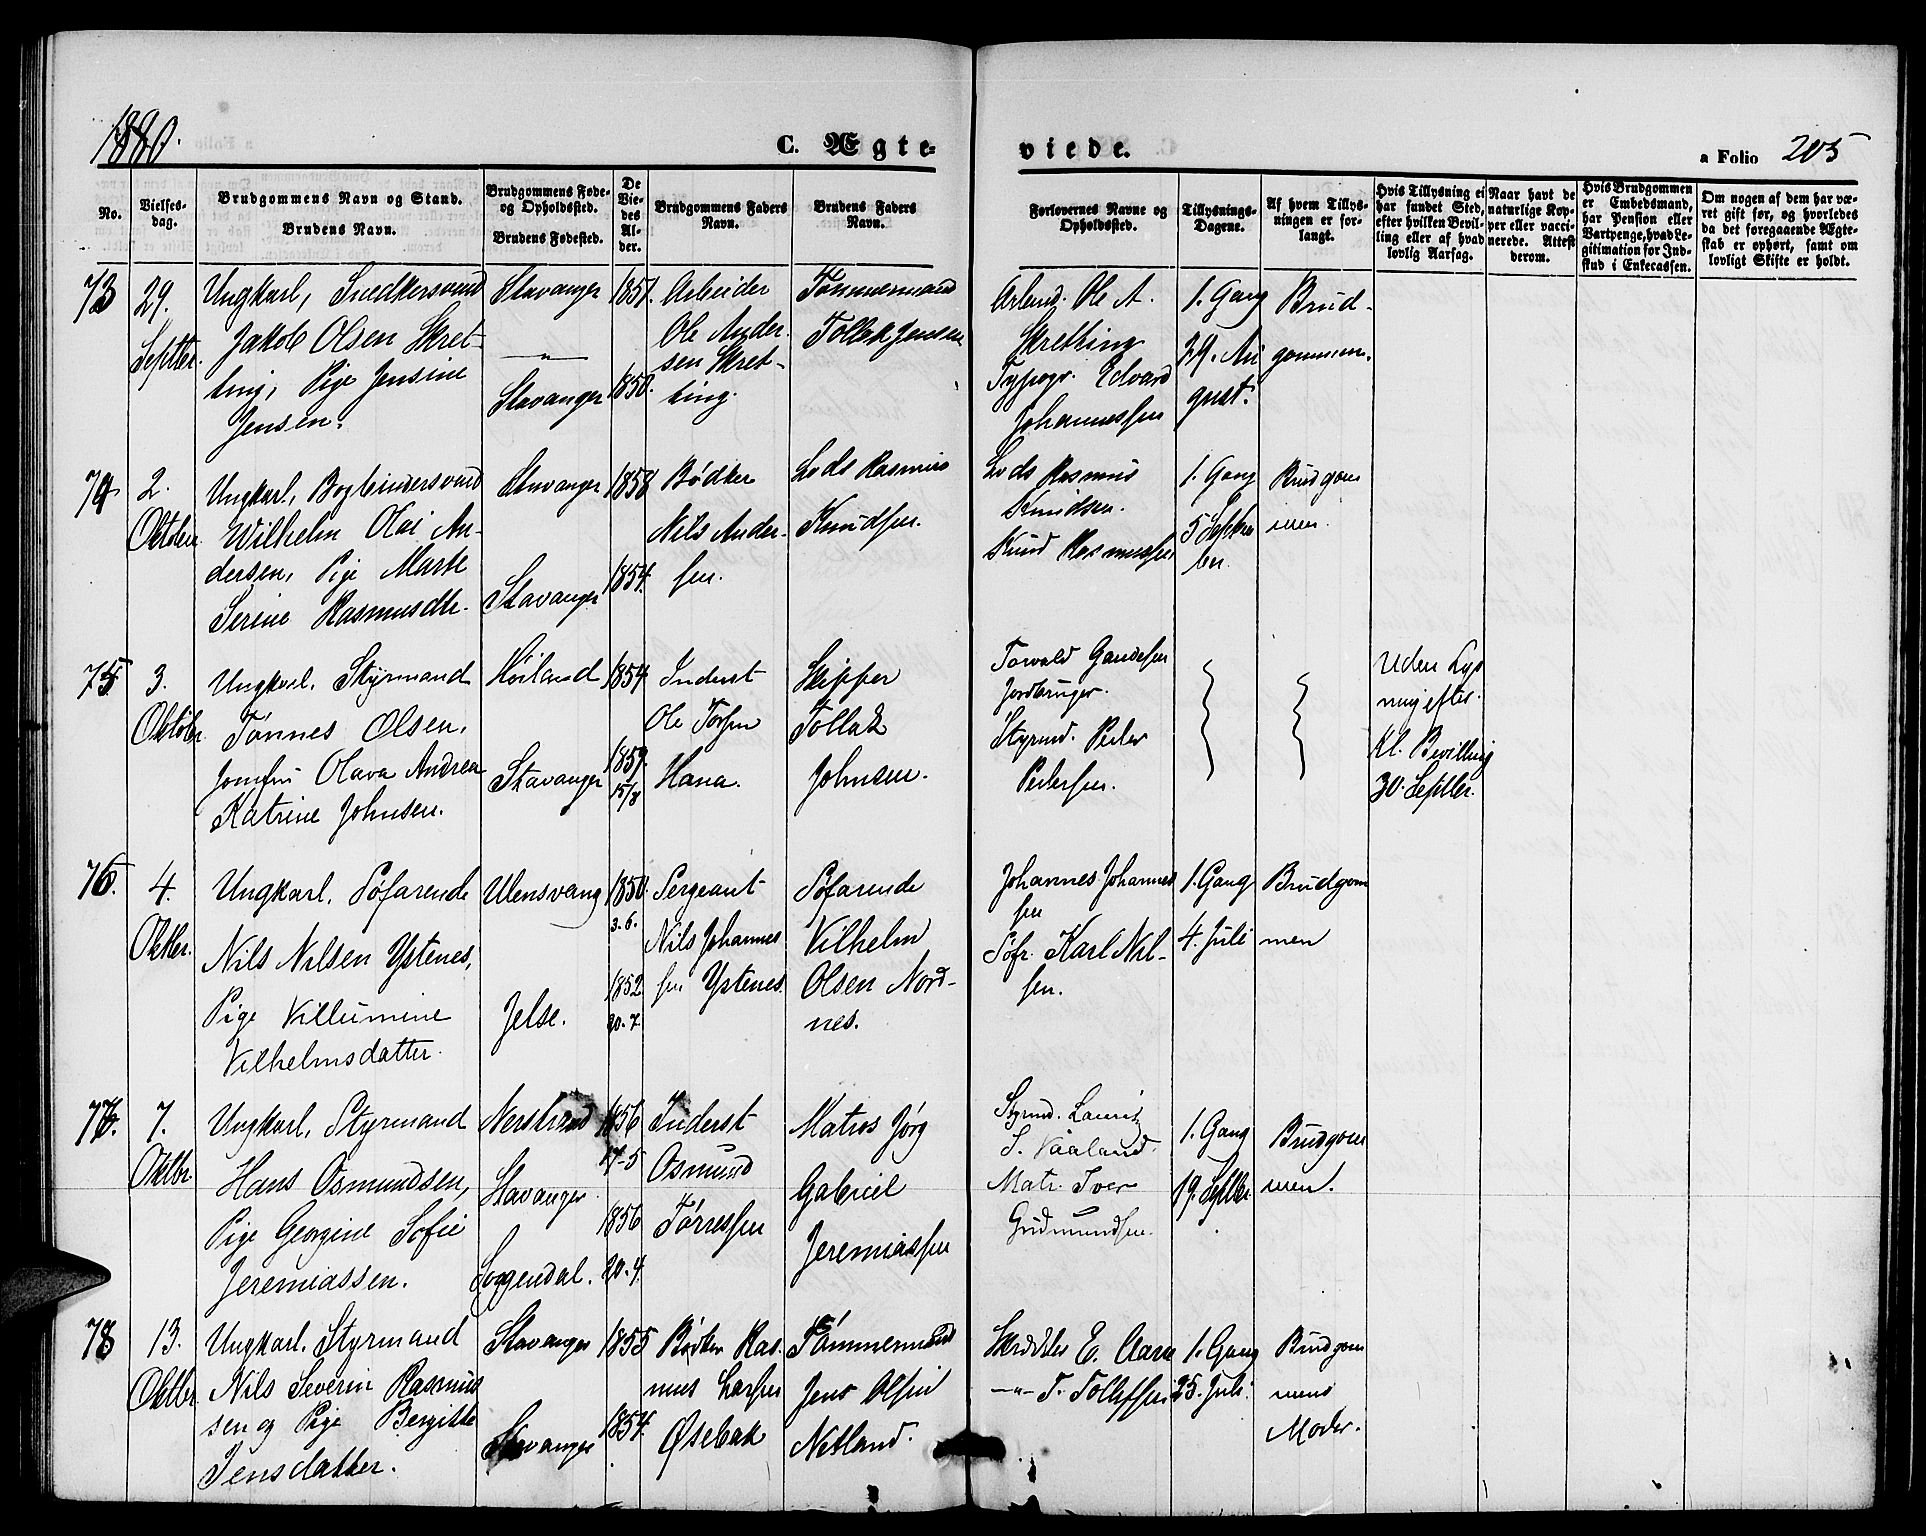 1880.
C. Ægte-
viede.
a Folio 205
No.
Vielses-
dag.
Brudgommens Navn og Stand.
Brudens Navn.
Brudgommens Føde-
og Opholdssted.
Brudens Fødested.
De
Vie-
des
Al-
der.
Brudgommens Faders
Navn.
Brudens Faders
Navn.
Forlovernes Navne og
Opholdssted.
Tillysnings-
Dagene.
Af hvem Tillys-
ningen er for-
langt.
Hvis Tillysning ei
har fundet Sted,
efter hvilken Bevil-
ling eller af hvad
lovlig Aarsag.
Naar havt de
naturlige Kop-
per eller vacci-
nerede. Attest
derom.
Hvis Brudgommen
er Embedsmand,
har Pension eller
Vartpenge, hvad Le-
gitimation for Ind-
skud i Enkecassen.
Om nogen af dem har væ-
ret gift før, og hvorledes
da det foregaaende Ægte-
skab er ophørt, samt om
lovligt Skifte er holdt.
73
29.
Septbr.
Ungkarl, Snedkersvend
Jakob Olsen Skret-
ting, Pige Jensine
Jensen.
Stavanger
— " —
Stavanger
1851.
1850.
Arbeider
Ole Ander-
sen Skret-
ting.
Tømmermand
Tollak Jensen
Arbeid. Ole A.
Skretting
Typogr. Edvard
Johannessen
1. Gang
29. Au
gust.
Brud-
gommen.
74
2.
Oktober
Ungkarl, Bogbindersvend
Wilhelm Olai An-
dersen, Pige Marte
Serine Rasmusdtr.
Stavanger
Stavanger
1858
1854.
Bødker
Nils Ander-
sen.
Lods Rasmus
Knudsen.
Lods Rasmus
Knudsen.
Knud Rasmussen
1. Gang
5 Septem
ber.
Brudgom
men.
75
3.
Oktobr
Ungkarl. Styrmand
Tønnes Olsen,
Jomfru Olava Andrea
Katrine Johnsen.
Høiland
Stavanger
1854.
1859.
15/8
Inderst
Ole Torsen
Hana.
Skipper
Tollak
Johnsen.
Torvald Gaudesen
Jordbruger.
Styrmd. Peder
Pedersen.
Uden Lys
ning efter
Kl. Bevilling
30. Septbr.
76.
4.
Oktbr.
Ungkarl. Søfarende
Nils Nilsen Ystenes,
Pige Villumine
Vilhelmsdatter.
Ulensvang
Jelse.
1850.
3. 6.
1852
20. 7.
Sergeant
Nils Johannes
sen Ystenes.
Søfarende
Vilhelm
Olsen Nord-
nes.
Johannes Johannes
sen
Søfr. Karl Nil-
sen.
1. Gang
4. Juli
Brudgom
men
77.
7.
Oktbr
Ungkarl, Styrmand
Hans Osmundsen,
Pige Georgine Sofie
Jeremiassen.
Nerstrand
Stavanger
Sogendal.
1856
-5
1856
20. 4.
Inderst
Osmund
Tørressen
Matros Jørg
Gabriel
Jeremiassen
Styrmd. Lauritz
S. Vaaland.
Matr. Iver
Gudmundsen.
1. Gang
19. Septbr.
Brudgom
men.
78
13.
Oktbr
Ungkarl. Styrmand
Nils Severin Rasmus
sen og Pige Bergitte
Jensdatter.
Stavanger
Stavanger
1855
1854.
Bødker Ras-
mus Larsen
Øsebak
Tømmermand
Jens Olsen
Netland.
Skrædder E. Aase
— " — T. Tollefsen
1. Gang
25. Juli.
Brudgom
mens
Moder.